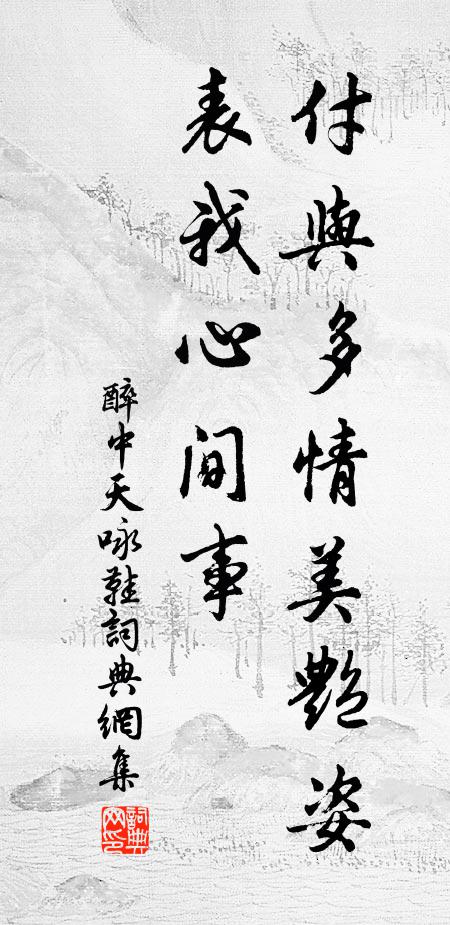 付與多情美艷姿
表我心間事
醉中天咏鞋詞典網集
詞典網印